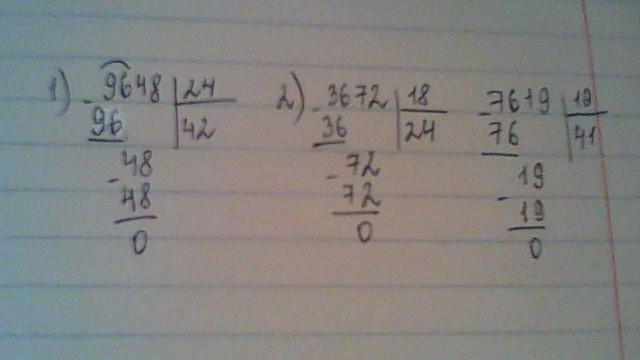 1) 9648 | 24
- 96 | 42
- 48
48
0
2) - 3672 | 18
36 | 24
- 72
72
0
- 7619 | 19
76 | 41
- 19
19
0